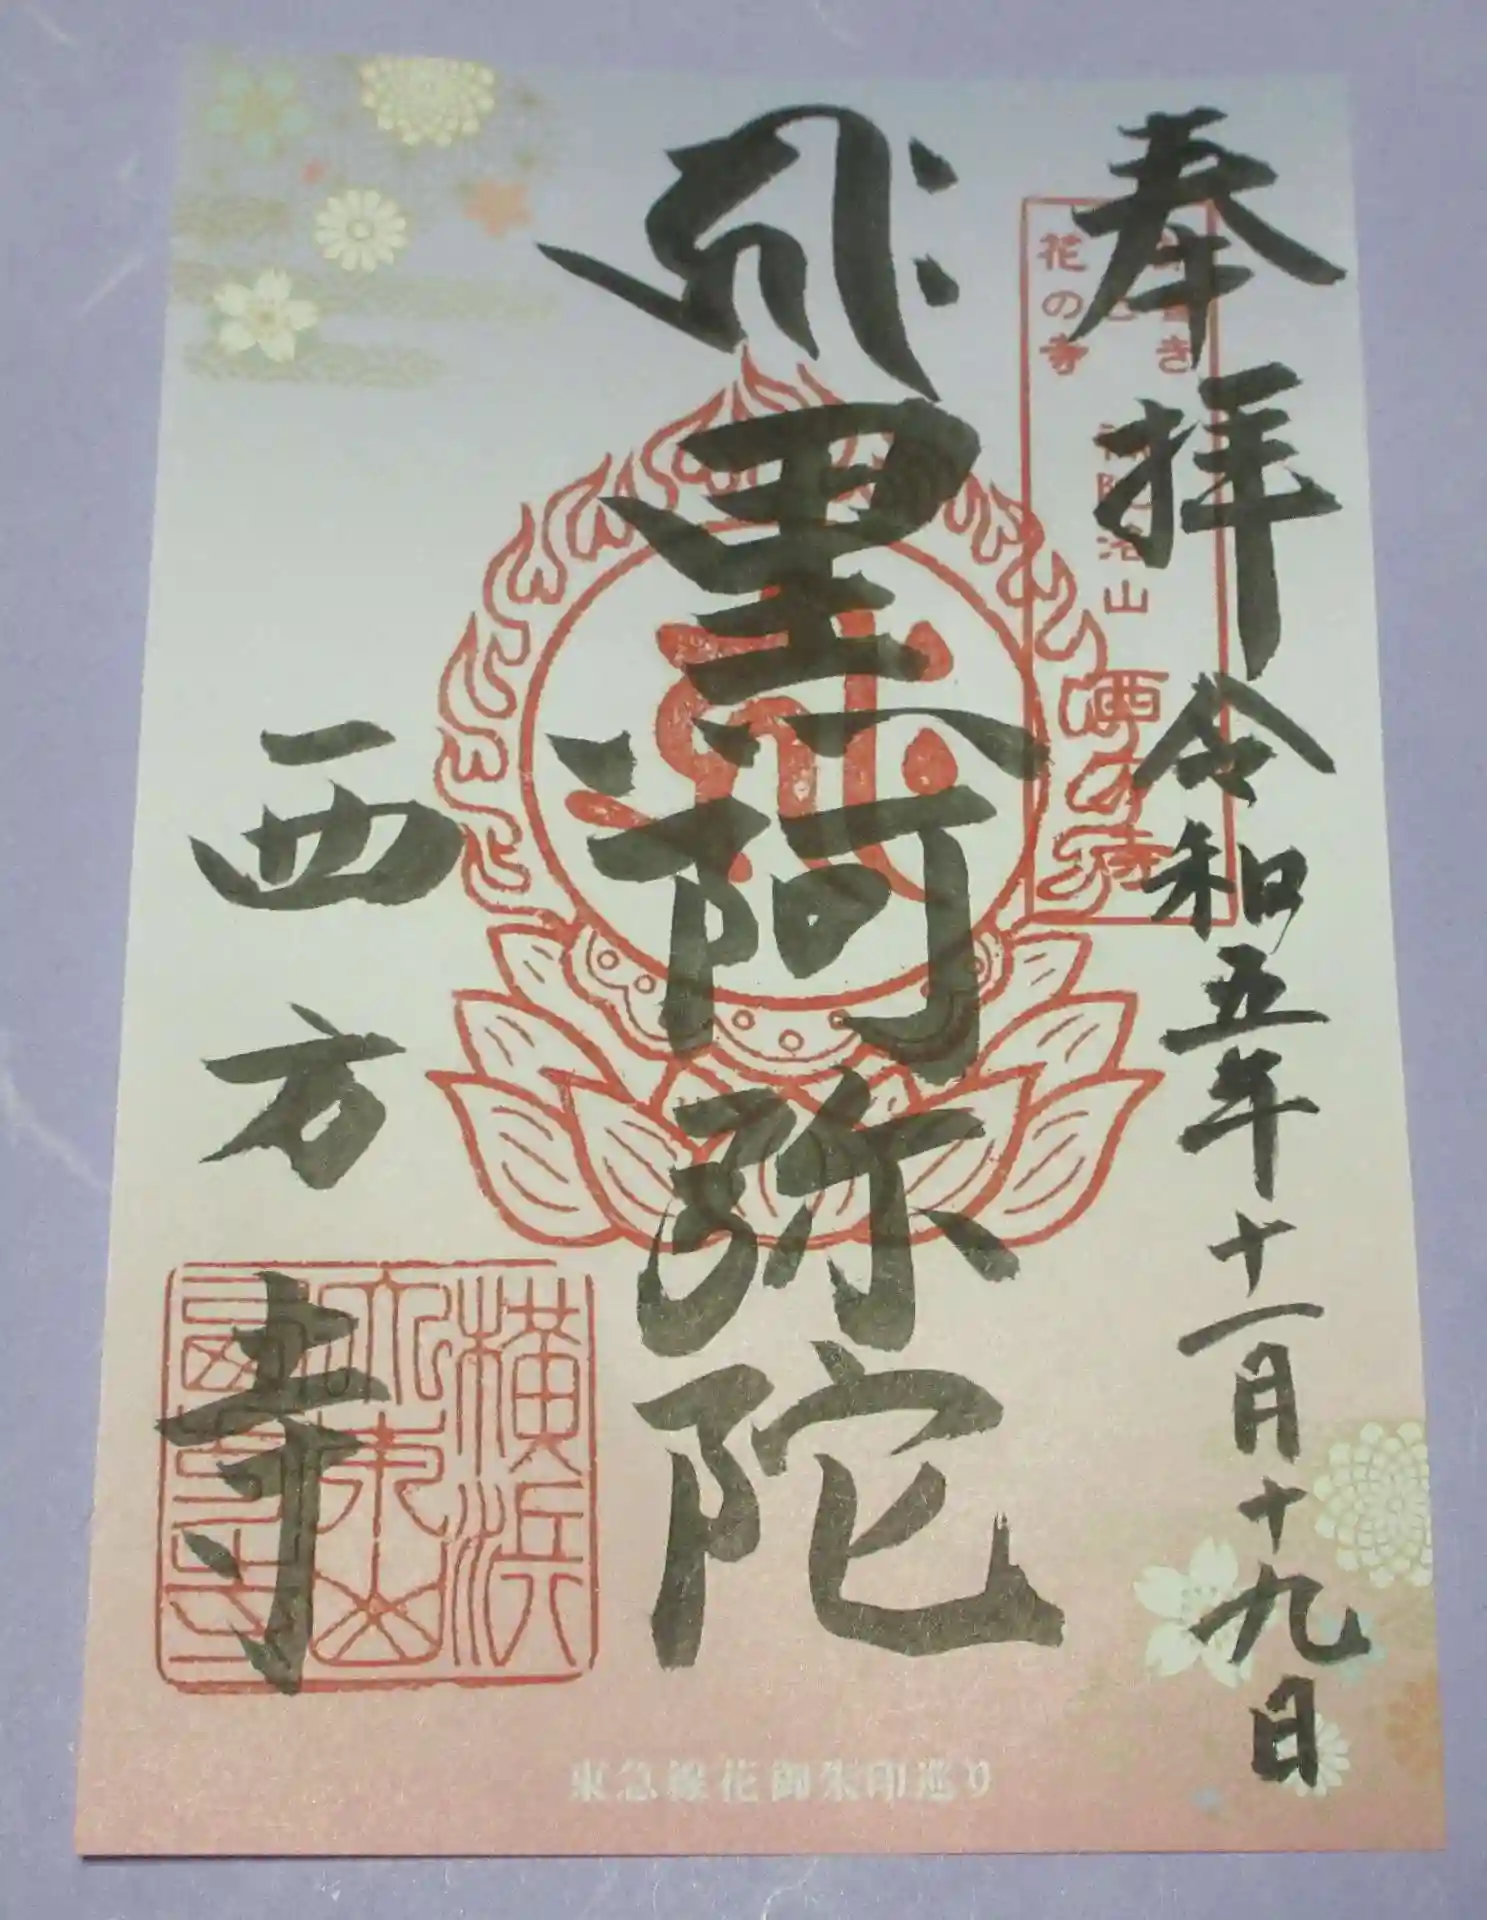 奉拝 令和五年十一月十九日
花の寺
西の寺
𑖮𑖿𑖨𑖱𑖾
里阿弥陀
西方寺
横浜
西方寺
東急線花御朱印巡り